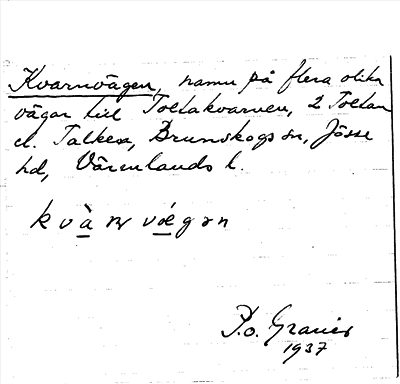 Kvarnvägen, namn på flera olika
vägar till Toltakvarnen, 2 Toltan
el. Talken, Brunskogs sn, Jösse
hd, Värmlands l.
kvànvǽgən
P.o. Granér
1937